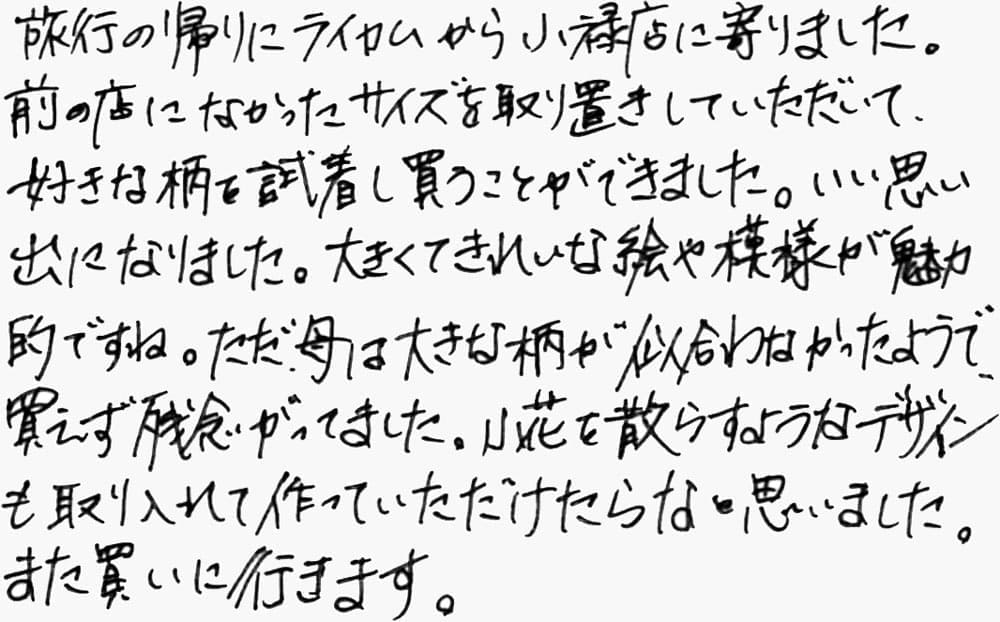 旅行の帰りにライカムから小禄店に寄りました。
前の店になかったサイズを取り置きしていただいて、
好きな柄を試着し買うことができました。いい思い
出になりました。大きくてきれいな絵や模様が魅力
的ですね。ただ、母は大きな柄が似合わなかったようで、
買えず残念がってました。小花を散らすようなデザイン
も取り入れて作っていただけたらなと思いました。
また買いに行きます。